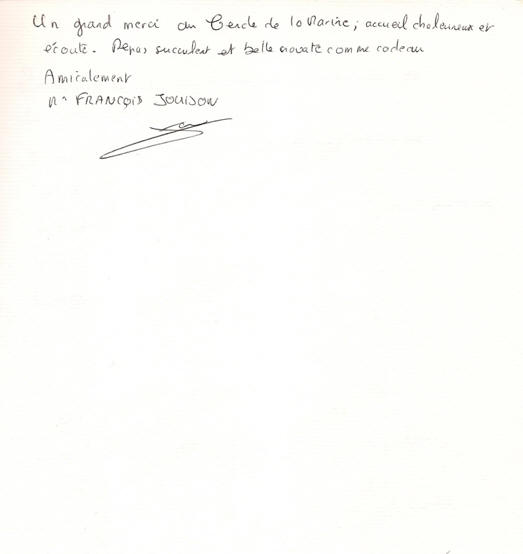 Un grand merci au Cercle de la Marine, accueil chaleureux et
écoute. Repas succulent et belle cravate comme cadeau
Amicalement
Mr FRANÇOIS JOUISON